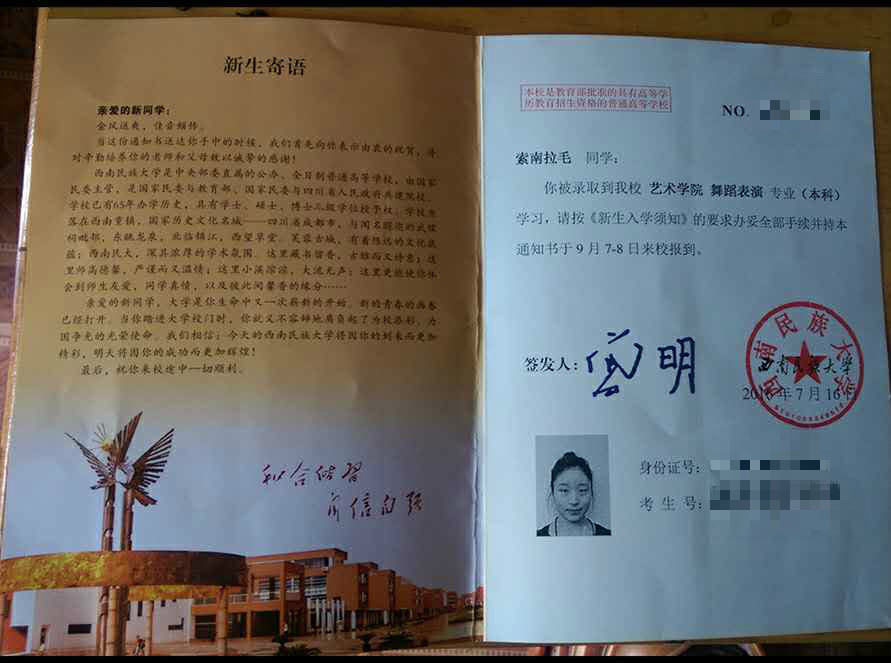 新生寄语
亲爱的新同学：
金风送爽，佳音频传。
当这份通知书送达你手中的时候，我们首先向你表示由衷的祝贺，并
对辛勤培养你的老师和父母致以诚挚的感谢！
西南民族大学是中央部委直属的公办、全日制普通高等学校，由国家
民委主管，是国家民委与教育部、国家民委与四川省人民政府共建院校。
学校已有65年办学历史，具有学士、硕士、博士三级学位授予权。学校坐
落在西南重镇，国家历史文化名城——四川省成都市，与闻名遐迩的武侯
祠毗邻，东眺龙泉，北临锦江，西望草堂。芙蓉古城，有着悠远的文化底
蕴；西南民大，深具浓厚的学术氛围。这里藏书留香，古雅而又诗意；这
里师高德馨，严谨而又温情；这里小溪淙淙，大流无声；这里更能使你体
会到师生友爱，同学真情，以及彼此间馨香的缘分……
亲爱的新同学，大学是你生命中又一次崭新的开始，新的青春的画卷
已经打开。当你踏进大学校门时，你就义不容辞地肩负起了为校添彩、为
国争光的光荣使命。我们相信：今天的西南民族大学将因你的到来而更加
精彩，明天将因你的成功而更加辉煌！
最后，祝你来校途中一切顺利。
和合偕習
自信自强
本校是教育部批准的具有高等学
历教育招生资格的普通高等学校
NO.
索南拉毛 同学：
你被录取到我校 艺术学院 舞蹈表演 专业（本科）
学习，请按《新生入学须知》的要求办妥全部手续并持本
通知书于 9 月 7-8 日来校报到。
签发人：
西南民族大学
西南民族大学
2016 年 7 月 16 日
身份证号：
考 生 号：